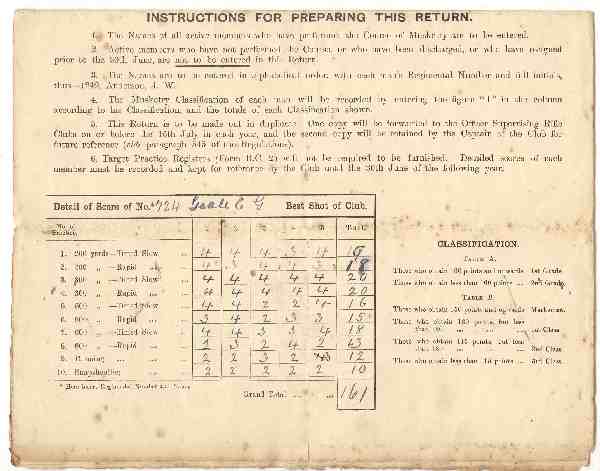 INSTRUCTIONS FOR PREPARING THIS RETURN.
1. The Names of all active members who have performed the Course of Musketry are to be entered.
2. Active members who have not performed the Course, or who have been discharged, or who have resigned
prior to the 30th June, are not to be entered in this Return.
3. The Names are to be entered in alphabetical order, with each man's Regimental Number and full initials,
thus— Anderson, J. W.
4. The Musketry Classification of each man will be recorded by entering the figure "1" in the column
according to his Classification, and the totals of each Classification shown.
5. This Return is to be made out in duplicate. One copy will be forwarded to the Officer Supervising Rifle
Clubs on or before the 15th July in each year, and the second copy will be retained by the Captain of the Club for
future reference (vide paragraph of the Regulations).
6. Target Practice Registers (Form R.C. 2) will not be required to be furnished. Detailed scores of each
member must be recorded and kept for reference by the Club until the 30th June of the following year.
Detail of Score of No.* 724 G Best Shot of Club.
No. of Practice. Total
1. 200 yards—Timed Slow 4 4 4 3 4 19
2. Rapid 18
3. Slow 4 4 4 4 4 20
4. Rapid 4 4 4 4 4 20
5. Slow 4 4 2 2 4 16
6. Rapid 3 4 2 3 3 15
7. Timed Slow 4 4 3 3 4 18
8. Rapid 3 2 4 2 13
9. Running 2 2 3 2 12
10. Snapshooting 2 2 2 2 2 10
* Here insert Regimental Number and Name.
Grand Total 161
CLASSIFICATION.
TABLE A.
Those who obtain 60 points and upwards 1st Grade.
Those who obtain less than 60 points 2nd Grade.
TABLE B.
Those who obtain points and upwards Marksman.
Those who obtain points, but less
than 1st Class.
Those who obtain points, but less
than 2nd Class.
Those who obtain less than points 3rd Class.